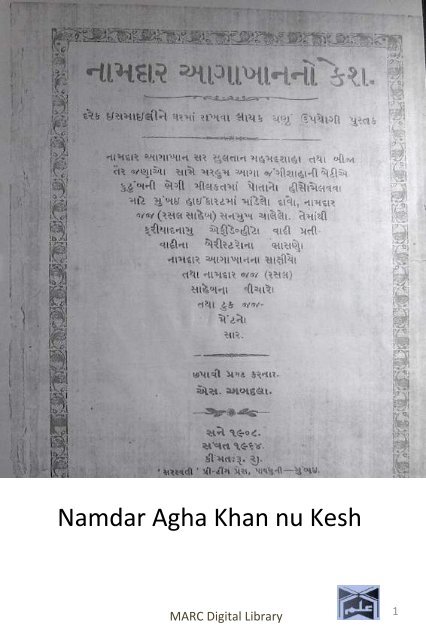 નામદાર આગાખાનનો કેશ.
દરેક ઇસમાઇલીને ઘરમાં રાખવા લાયક ઘણું ઉપયોગી પુસ્તક
નામદાર આગાખાન સર સુલતાન મહમદશાહા તથા બીજા
તેર જણાએા સામે મરહુમ આગા જંગીશાહાની બેટીએ
કુટુંબની ભેગી મીલકતમાં પોતાનો હીસ્સો મેલવવા
માટે મુંબઇ હાઇકોરટમાં માંડેલો દાવો, નામદાર
જજ (રસલ સાહેબ) સનમુખ ચાલેલો. તેમાંથી
ફરીયાદનામુ એફીડેવ્હીટો વાદી પ્રતી-
વાદીના બેરીસ્ટરોના ભાસણો.
નામદાર આગાખાનના સાક્ષીયો
તથા નામદાર જજ (રસલ)
સાહેબના વીચારો
તથા ટુંક જજ-
મેંટનો
સાર.
છપાવી પ્રગટ કરનાર.
એસ. અબદલા.
સને ૧૯૦૮.
સંવત ૧૯૬૪.
કીંમત: રૂ. ૨).
"સરસ્વતી" પ્રીન્ટીંગ પ્રેસ, પાયધુની—મુંબઇ.
Namdar Agha Khan nu Kesh
علم
MARC Digital Library
1